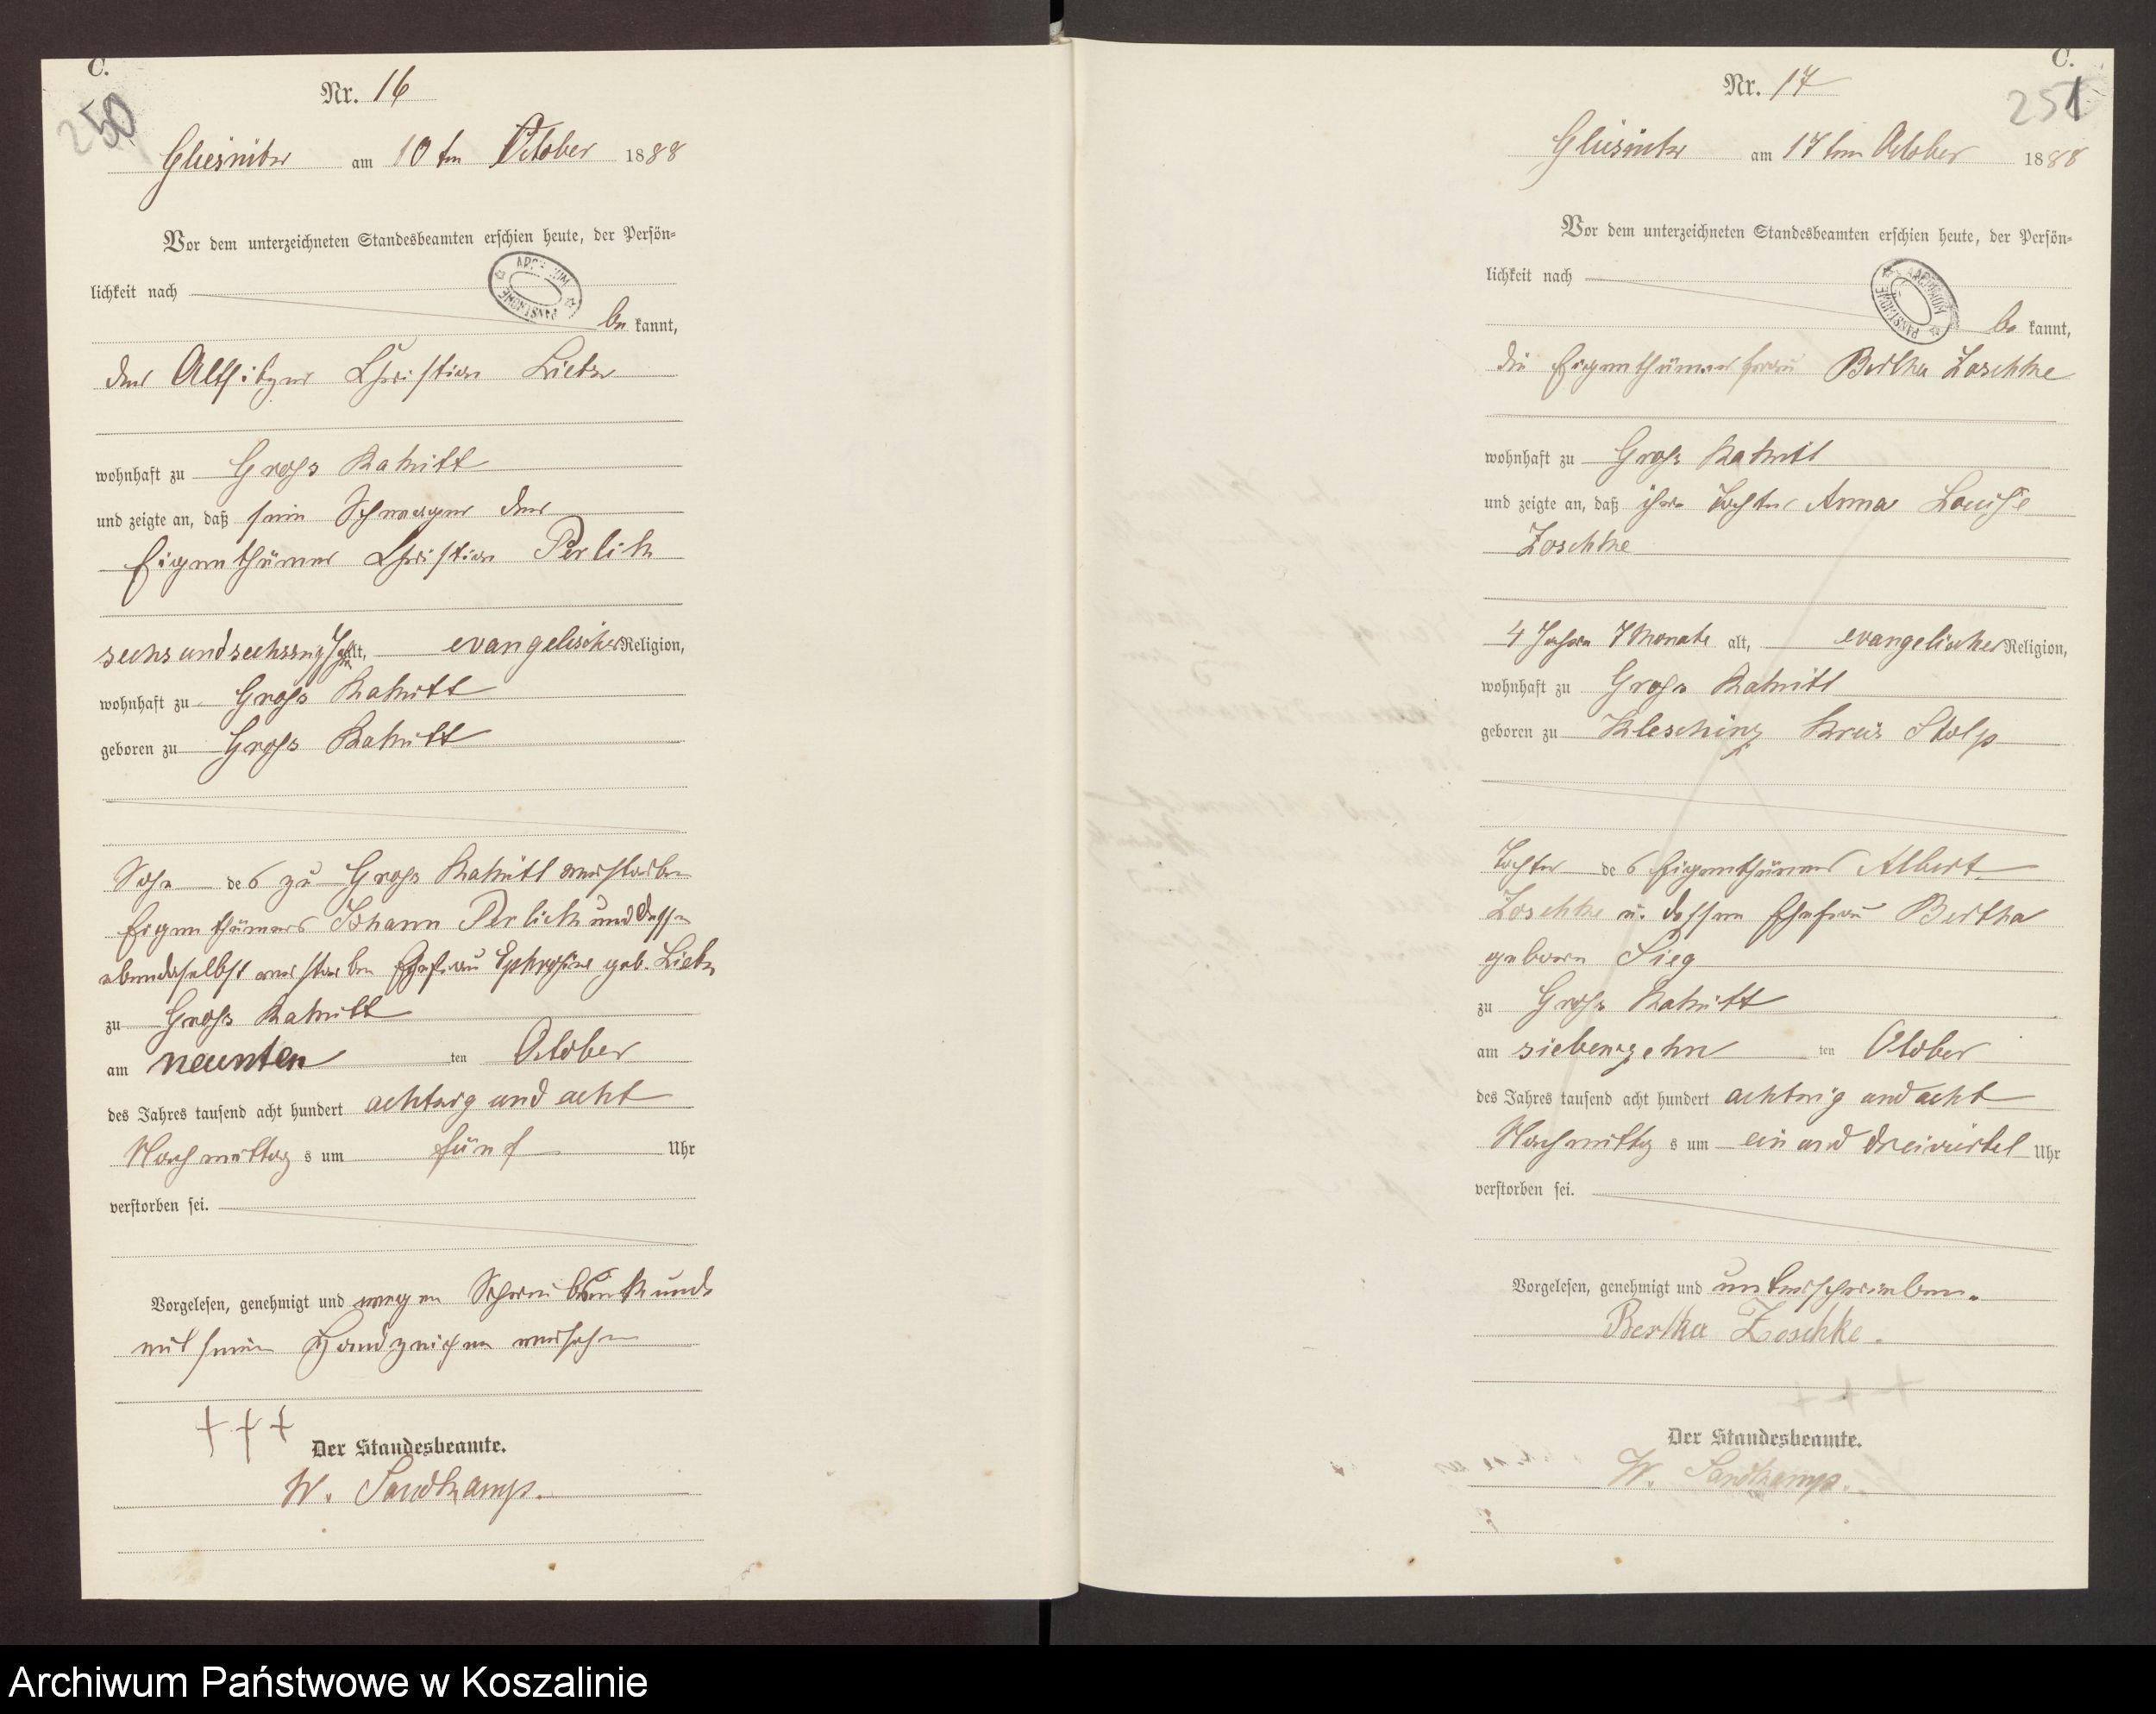 C.
250
Nr. 16
Gliesnitz am 10 ten October 1888
Vor dem unterzeichneten Standesbeamten erschien heute, der Persön-
lichkeit nach
be kannt,
der Altsitzer Christian Lietz
wohnhaft zu Gross Rakitt
und zeigte an, daß sein Schwager der
Eigenthümer Christian Perlick
sechs und sechszig Jahre alt, evangelischer Religion,
wohnhaft zu Gross Rakitt
geboren zu Gross Rakitt
Sohn des zu Gross Rakitt verstorben
Eigenthümers Johann Perlick und dessen
ebendaselbst verstorben Ehefrau geb. Lietz
zu Gross Rakitt
am neunten ten October
des Jahres tausend acht hundert achtzig und acht
Nachmittag s um fünf Uhr
verstorben sei.
Vorgelesen, genehmigt und wegen Schreibunkunde
mit seinem Handzeichen versehen
+++
Der Standesbeamte.
W. Sandkamp.
C.
251
Nr. 17
Gliesnitz am 17 ten October 1888
Vor dem unterzeichneten Standesbeamten erschien heute, der Persön-
lichkeit nach
be kannt,
die Eigenthümerfrau Bertha Zoschke
wohnhaft zu Gross Rakitt
und zeigte an, daß ihre Tochter Anna Louise
Zoschke
4 Jahre 7 Monate alt, evangelischer Religion,
wohnhaft zu Gross Rakitt
geboren zu Klesching Kreis Stolp
Tochter des Eigenthümers Albert
Zoschke u. dessen Ehefrau Bertha
geboren Sieg
zu Gross Rakitt
am siebenzehn ten October
des Jahres tausend acht hundert achtzig und acht
Nachmittag s um ein und dreiviertel Uhr
verstorben sei.
Vorgelesen, genehmigt und unterschrieben.
Bertha Zoschke.
Der Standesbeamte.
W. Sandkamp.
Archiwum Państwowe w Koszalinie